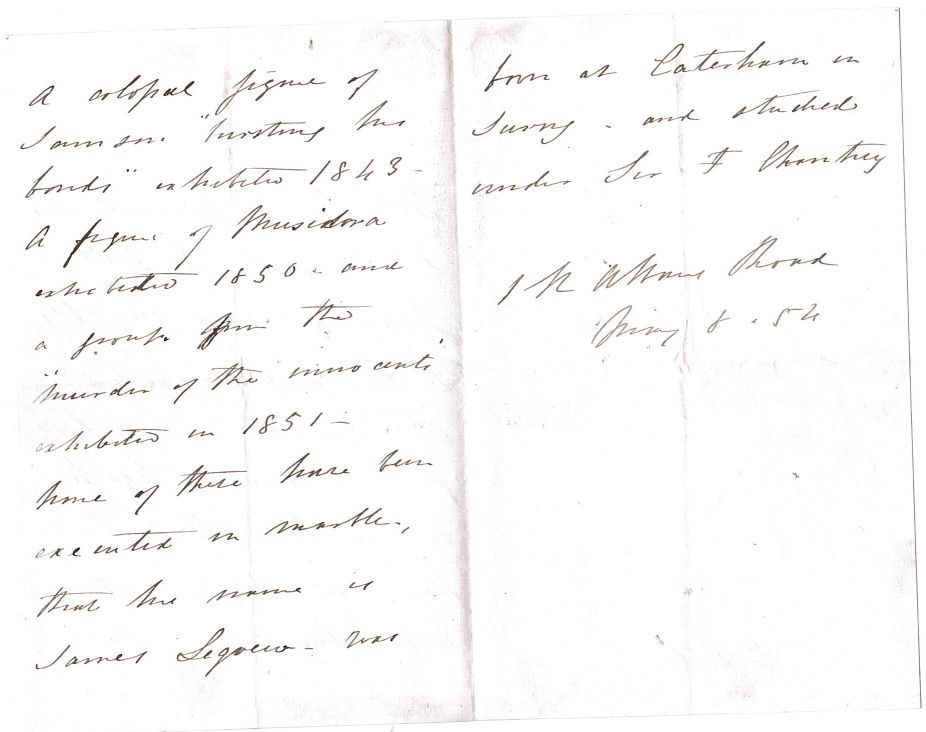 A colossal figure of
Samson "bursting his
bonds" exhibited 1843 -
A figure of Musidora
exhibited 1850 - and
a group from the
"murder of the innocents"
exhibited in 1851 -
none of these have been
executed in marble -,
that his name is
James Legrew - was
born at Caterham in
Surrey - and studied
under Sir F Chantrey
1 St Albans Road
May 8 . 54